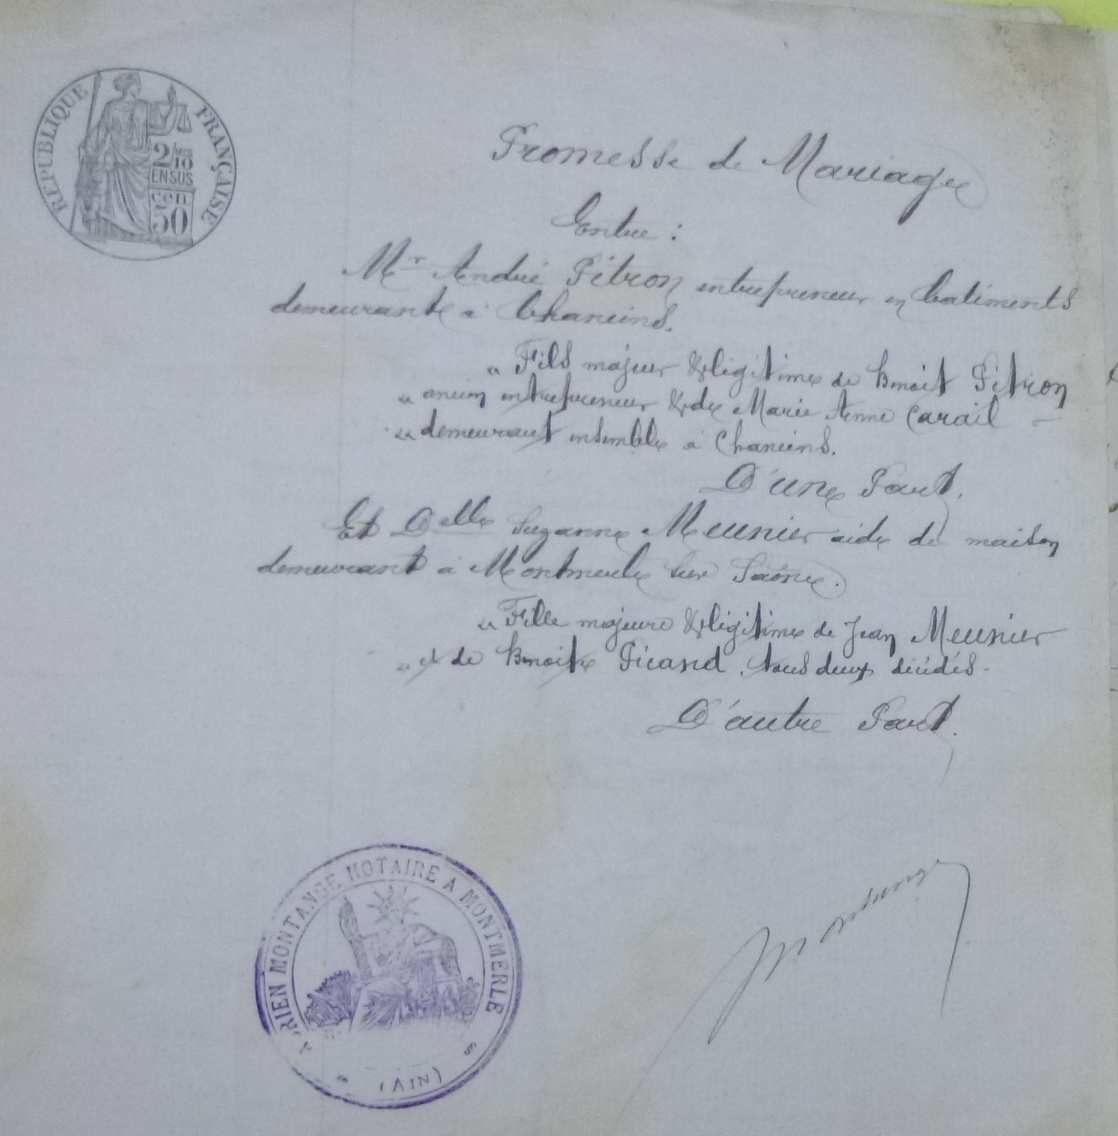 RÉPUBLIQUE FRANÇAISE
2/10
EN SUS
50
Promesse de Mariage
Entre :
Mr André Pitron entrepreneur en batiments
demeurant à Chaneins.
" Fils majeur & légitime de Benoit Pitron
" ancien entrepreneur & de Marie Anne Carail -
" demeurant ensemble à Chaneins.
D'une Part.
Et Delle Suzanne Meunier aide de maison
demeurant à Montmerle sur Saône.
" Fille majeure & légitime de Jean Meunier
" et de Benoite Picand, tous deux décédés -
D'autre Part.
ADRIEN MONTANGE NOTAIRE A MONTMERLE
(AIN)
Montange